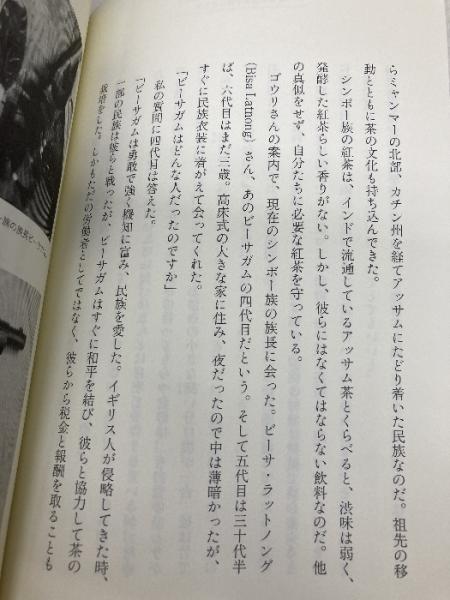 らミャンマーの北部、カチン州を経てアッサムにたどり着いた民族なのだ。祖先の移
動とともに茶の文化も持ち込んできた。
シンポー族の紅茶は、インドで流通しているアッサム茶とくらべると、渋味は弱く、
発酵した紅茶らしい香りがない。しかし、彼らにはなくてはならない飲料なのだ。他
の真似をせず、自分たちに必要な紅茶を守っている。
ゴウリさんの案内で、現在のシンポー族の族長に会った。ビーサ・ラットノング
(Bisa Latnong) さん、あのビーサガムの四代目だという。そして五代目は三十代半
ば、六代目はまだ三歳。高床式の大きな家に住み、夜だったので中は薄暗かったが、
すぐに民族衣装に着がえて会ってくれた。
「ビーサガムはどんな人だったのですか」
私の質問に四代目は答えた。
「ビーサガムは勇敢で強く機知に富み、民族を愛した。イギリス人が侵略してきた時、
一部の民族は彼らと戦ったが、ビーサガムはすぐに和平を結び、彼らと協力して茶の
栽培をした。しかもただの労働者としてではなく、彼らから税金と報酬を取ることも
族の族長ビーサ